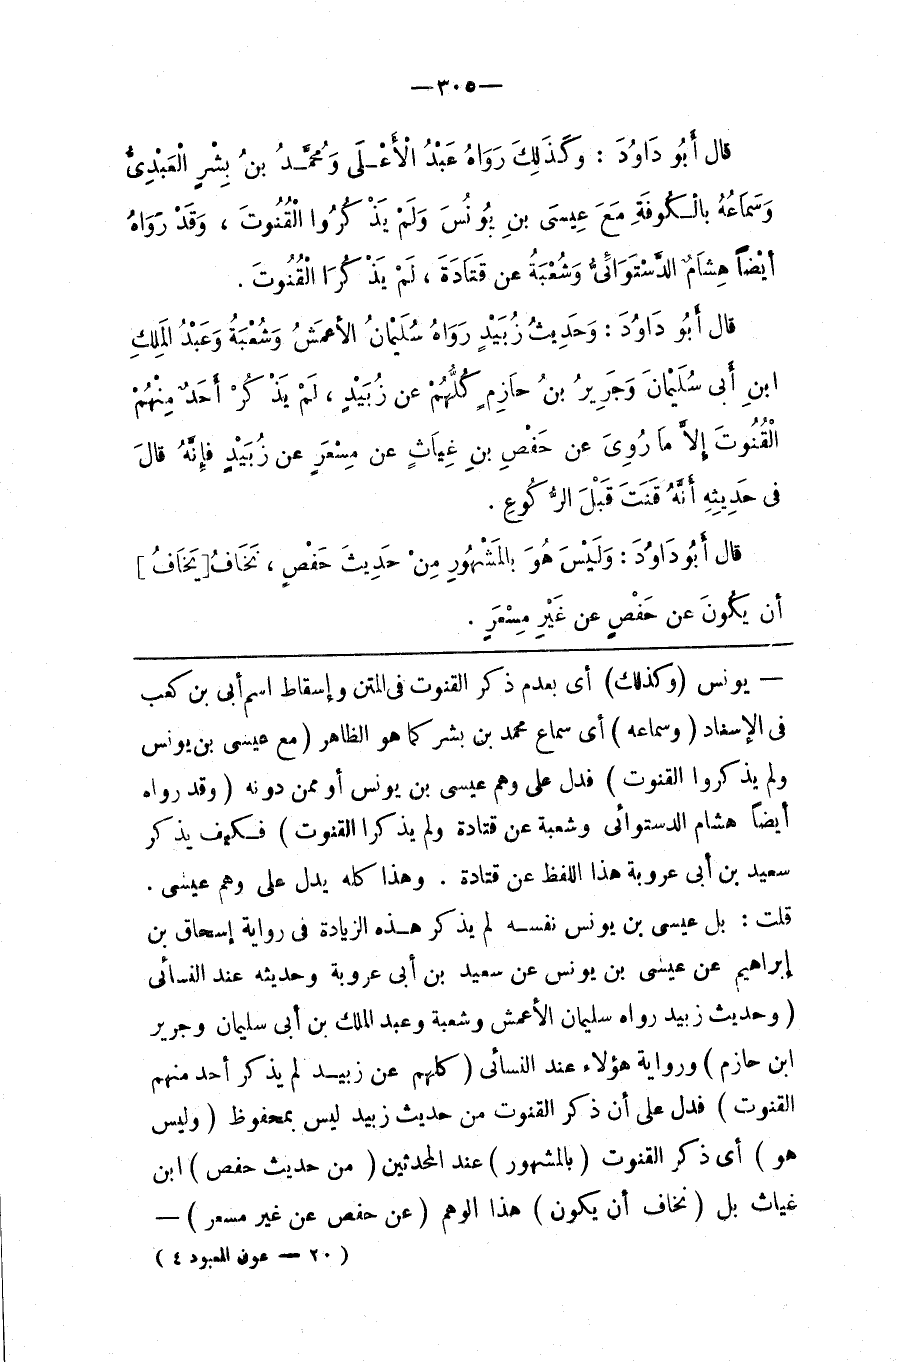 —٣٠٥—
قال أَبُو دَاوُدَ : وَكَذَلِكَ رَوَاهُ عَبْدُ الْأَعْلَى وَمُحَمَّدُ بنُ بِشْرٍ الْعَبْدِىُّ
وَسَمَاعُهُ بالْكُوفَةِ مَعَ عِيسَى بنِ يُونُسَ وَلَمْ يَذْكُرُوا الْقُنُوتَ ، وَقَدْ رَوَاهُ
أيْضاً هِشَامٌ الدَّسْتَوَائِىُّ وَشُعْبَةُ عن قَتَادَةَ ، لَمْ يَذْكُرَا الْقُنُوتَ .
قال أَبُو دَاوُدَ : وَحَدِيثُ زُبَيْدٍ رَوَاهُ سُلَيْمَانُ الأعمَشُ وَشُعْبَةُ وَعَبْدُ المَلِكِ
ابنِ أَبى سُلَيْمَانَ وَجَرِيرُ بنُ حَازِمٍ كُلُّهُمْ عن زُبَيْدٍ ، لَمْ يَذْكُرْ أَحَدٌ مِنْهُمْ
الْقُنُوتَ إِلاَّ مَا رُوِىَ عن حَفْصِ بنِ غِيَاثٍ عن مِسْعَرٍ عن زُبَيْدٍ فإِنَّهُ قالَ
فى حَدِيثِهِ أَنَّهُ قَنَتَ قَبْلَ الرُّكُوعِ .
قال أَبُو دَاوُدَ : وَلَيْسَ هُوَ بالمَشْهُورِ مِنْ حَدِيثَ حَفْصٍ ، نَخَافُ [يَخَافُ]
أن يَكُونَ عن حَفْصٍ عن غَيْرِ مِسْعَرٍ .
— يونس (وكذلك) أى بعدم ذكر القنوت فى المتن وإسقاط اسم أبى بن كعب
فى الإسناد (وسماعه) أى سماع محمد بن بشر كما هو الظاهر (مع عيسى بن يونس
ولم يذكروا القنوت) فدل على وهم عيسى بن يونس أو ممن دونه (وقد رواه
أيضاً هشام الدستوائى وشعبة عن قتادة ولم يذكرا القنوت) فكيف يذكر
سعيد بن أبى عروبة هذا اللفظ عن قتادة . وهذا كله يدل على وهم عيسى .
قلت : بل عيسى بن يونس نفسه لم يذكر هذه الزيادة فى رواية إسحاق بن
إبراهيم عن عيسى بن يونس عن سعيد بن أبى عروبة وحديثه عند النسائى
(وحديث زبيد رواه سليمان الأعمش وشعبة وعبد الملك بن أبى سليمان وجرير
ابن حازم) ورواية هؤلاء عند النسائى (كلهم عن زبيد لم يذكر أحد منهم
القنوت) فدل على أن ذكر القنوت من حديث زبيد ليس بمحفوظ (وليس
هو) أى ذكر القنوت (بالمشهور) عند المحدثين (من حديث حفص) ابن
غياث بل (نخاف أن يكون) هذا الوهم (عن حفص عن غير مسعر) —
(٢٠ — عون المعبود ٤)